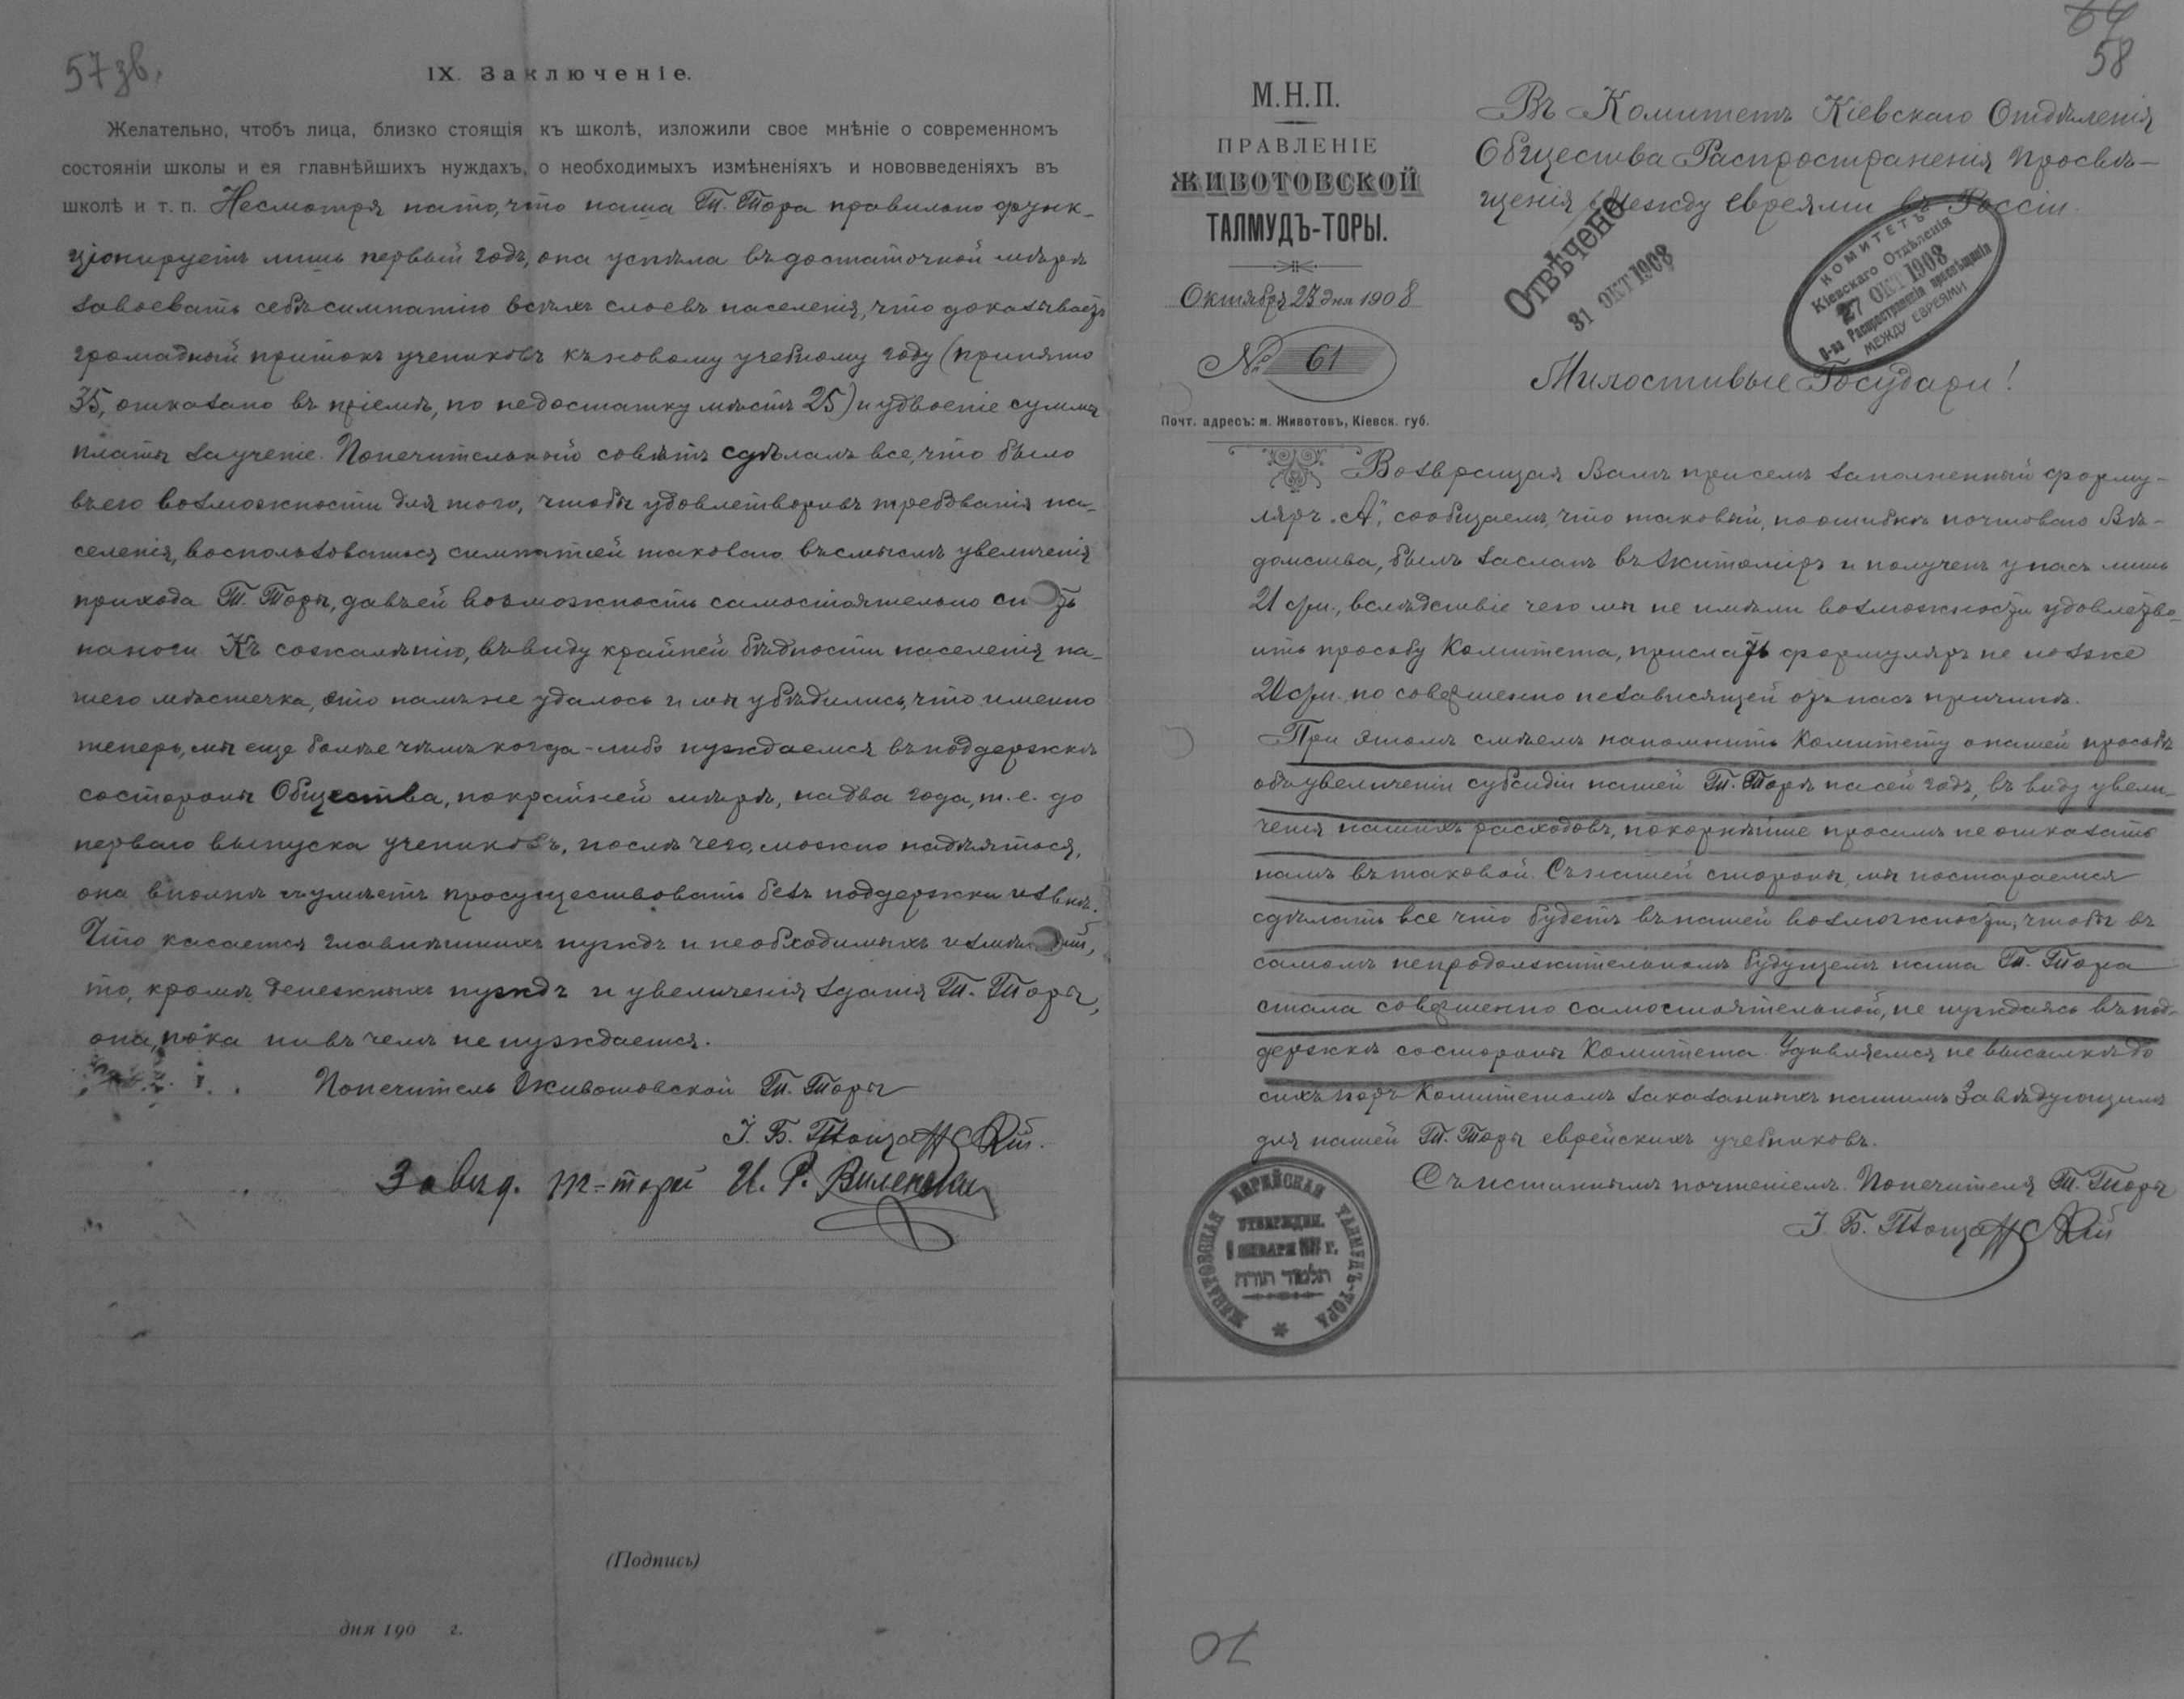 57 зв.
IX. Заключеніе.
Желательно, чтобъ лица, близко стоящія къ школѣ, изложили свое мнѣніе о современномъ
состояніи школы и ея главнѣйшихъ нуждахъ, о необходимыхъ измѣненіяхъ и нововведеніяхъ въ
школѣ и т. п. Несмотря на то, что наша Т. Тора правильно функ-
ціонируетъ лишь первый годъ, она успѣла въ достаточной мѣрѣ
завоевать себѣ симпатію всѣхъ слоевъ населенія, что доказываетъ
громадный притокъ учениковъ къ новому учебному году (принято
35, отказано въ пріемѣ, по недостатку мѣстъ 25) и удвоеніе суммы
платы за ученіе. Попечительный совѣтъ сдѣлалъ все, что было
въ его возможности для того, чтобы удовлетворивъ требованія на-
селенія, воспользоваться симпатіей таковаго въ смыслѣ увеличенія
прихода Т. Торы, давъ ей возможность самостоятельно
на ноги. Къ сожалѣнію, въ виду крайней бѣдности населенія на-
шего мѣстечка, это намъ не удалось и мы убѣдились, что именно
теперь, мы еще болѣе чѣмъ когда-либо нуждаемся въ поддержкѣ
со стороны Общества, по крайней мѣрѣ, на два года, т. е. до
перваго выпуска учениковъ, послѣ чего, можно надѣяться,
она вполнѣ съумѣетъ просуществовать безъ поддержки извнѣ.
Что касается главнѣйшихъ нуждъ и необходимыхъ
то, кромѣ денежныхъ нуждъ и увеличенія зданія Т. Торы,
она, пока ни въ чемъ не нуждается.
Попечитель Животовской Т. Торы
І. Б.
Завѣд. т-торой И. Р. Виленскій
(Подпись)
дня 190 г.
64
58
М.Н.П.
ПРАВЛЕНІЕ
ЖИВОТОВСКОЙ
ТАЛМУДЪ-ТОРЫ.
Октября 23 дня 1908
№ 61
Почт. адресъ: м. Животовъ, Кіевск. губ.
Въ Комитетъ Кіевскаго Отдѣленія
Общества Распространенія Просвѣ-
щенія между евреями въ Россіи.
Отвѣчено
31 ОКТ 1908
КОМИТЕТЪ
Кіевскаго Отдѣленія
27 ОКТ 1908
О-ва Распространенія просвѣщенія
МЕЖДУ ЕВРЕЯМИ
Милостивые Государи!
Возвращая Вамъ при семъ заполненный форму-
ляръ „А“, сообщаемъ, что таковый, по ошибкѣ почтоваго Вѣ-
домства, былъ засланъ въ Житоміръ и полученъ у насъ лишь
21 с/м., вслѣдствіе чего мы не имѣли возможности удовлетво-
ить просьбу Комитета, прислать формуляръ не позже
20 с/м. по совершенно независящей отъ насъ причинѣ.
При этомъ смѣемъ напомнить Комитету о нашей просьбѣ
объ увеличеніи субсидіи нашей Т. Торѣ на сей годъ, въ виду увели-
ченія нашихъ расходовъ, покорнѣйше просимъ не отказать
намъ въ таковой. Съ нашей стороны, мы постараемся
сдѣлать все что будетъ въ нашей возможности, чтобы въ
самомъ непродолжительномъ будущемъ наша Т. Тора
стала совершенно самостоятельной, не нуждаясь въ под-
держкѣ со стороны Комитета. Удивляемся не высылкѣ до
сихъ поръ Комитетомъ заказанныхъ нашимъ Завѣдующимъ
для нашей Т. Торы еврейскихъ учебниковъ.
Съ истиннымъ почтеніемъ. Попечителя Т. Торы
І. Б.
ЖИВАТОВСКАЯ ЕВРЕЙСКАЯ ТАЛМУДЪ-ТОРА
УТВЕРЖДЕН.
ЯНВАРЯ Г.
תלמוד תורה